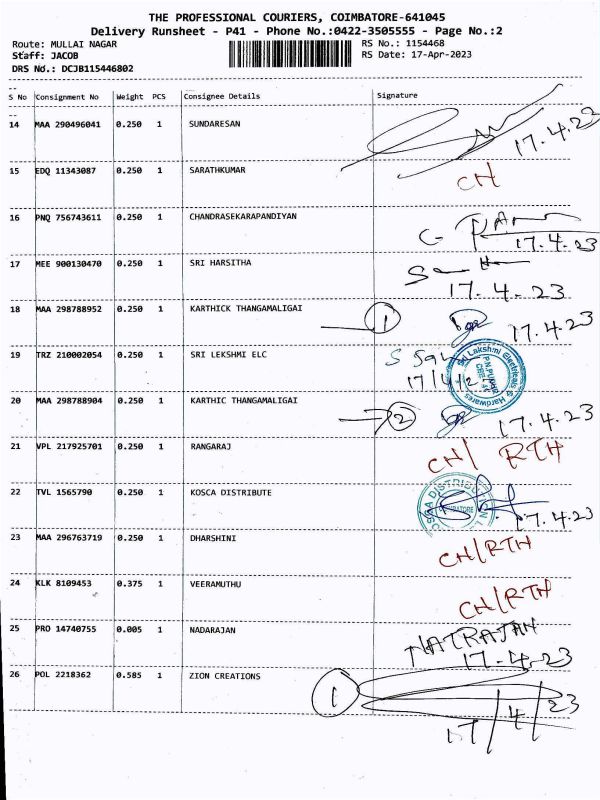 THE PROFESSIONAL COURIERS, COIMBATORE-641045
Delivery Runsheet - P41 - Phone No.:0422-3505555 - Page No.:2
Route: MULLAI NAGAR RS No.: 1154468
Staff: JACOB RS Date: 17-Apr-2023
DRS No.: DCJB115446802
S No Consignment No Weight PCS Consignee Details Signature
14 MAA 290496041 0.250 1 SUNDARESAN 17.4.23
15 EDQ 11343087 0.250 1 SARATHKUMAR CH
16 PNQ 756743611 0.250 1 CHANDRASEKARAPANDIYAN
17.4.23
17 MEE 900130470 0.250 1 SRI HARSITHA
17.4.23
18 MAA 298788952 0.250 1 KARTHICK THANGAMALIGAI 1 17.4.23
19 TRZ 210002054 0.250 1 SRI LEKSHMI ELC Sri Lakshmi Electricals & Hardwares
20 MAA 298788904 0.250 1 KARTHIC THANGAMALIGAI 2 17.4.23
21 VPL 217925701 0.250 1 RANGARAJ CH/ RTH
22 TVL 1565790 0.250 1 KOSCA DISTRIBUTE 17.4.23
23 MAA 296763719 0.250 1 DHARSHINI CH/RTH
24 KLK 8109453 0.375 1 VEERAMUTHU CH/RTH
25 PRO 14740755 0.005 1 NADARAJAN NATRAJAN
17-4-23
26 POL 2218362 0.585 1 ZION CREATIONS 1
17/4/23